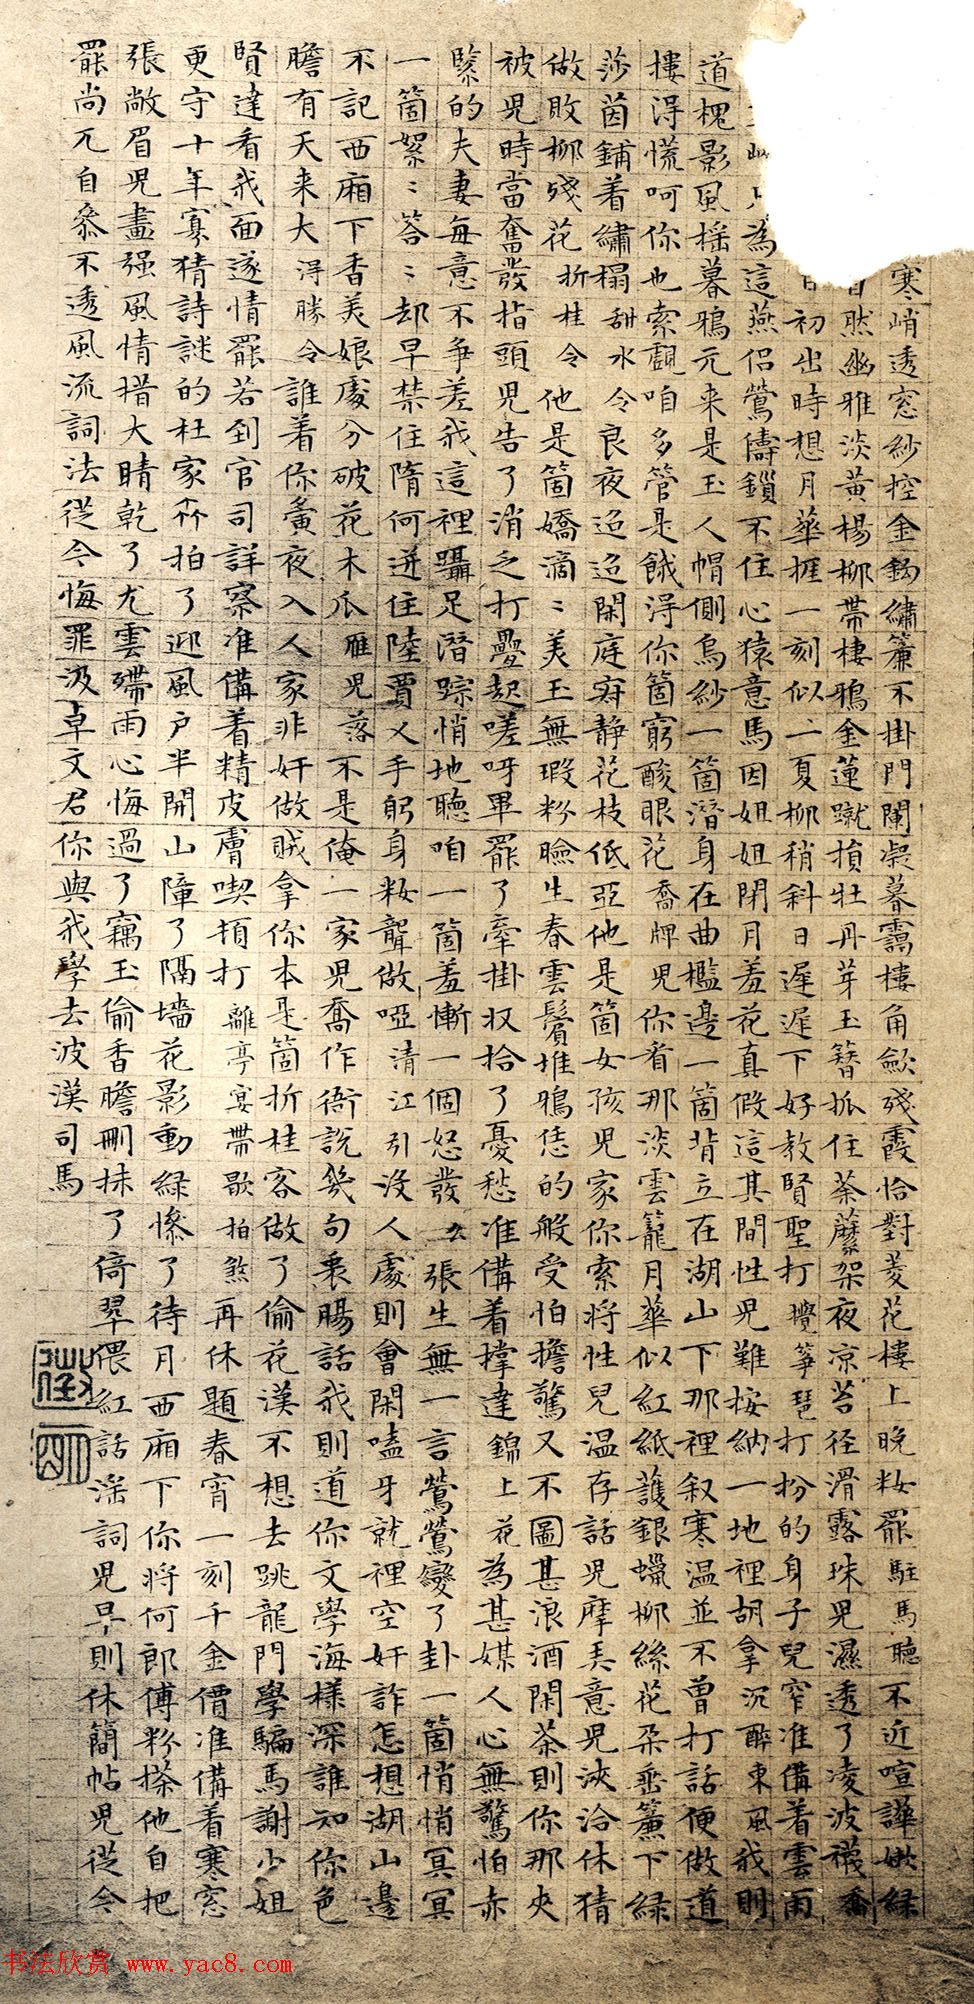 寒峭透窓紗控金鈎繡簾不掛門闌凝暮靄樓角歛殘霞恰對菱花樓上晚粧罷駐馬聽不近喧譁嫩綠
然幽雅淡黃楊柳帶棲鴉金蓮蹴損牡丹芽玉簪抓住荼蘼架夜凉苔径滑露珠児濕透了凌波襪喬
初出時想月華捱一刻似一夏柳稍斜日遲遲下好教賢聖打攪筝琶打扮的身子兒窄准備着雲雨
為這燕侣鶯儔鎖不住心猿意馬因姐姐閉月羞花真假這其間性兒難按納一地裡胡拿沉醉東風我則
道槐影風搖暮鴉元来是玉人帽側烏紗一箇潛身在曲檻邊一箇背立在湖山下那裡叙寒温並不曾打話便做道
摟得慌呵你也索覷咱多管是餓得你箇窮酸眼花喬牌児你看那淡雲籠月華似紅紙護銀蠟柳絲花朵垂簾下綠
莎茵鋪着繡榻甜水令良夜迢迢閑庭寂静花枝低亞他是箇女孩児家你索將性兒温存話児摩弄意児浹洽休猜
做敗柳殘花折桂令他是箇嬌滴〻美玉無瑕粉臉生春雲鬢堆鴉恁的般受怕擔驚又不圖甚浪酒閑茶則你那夾
被児時當奮發指頭児告了消乏打疊起嗟呀畢罷了牽掛収拾了憂愁准備着撑達錦上花為甚媒人心無驚怕赤
緊的夫妻每意不争差我這裡躡足潜踪悄地聽咱一箇羞慚一個怒發幺張生無一言鶯鶯變了卦一箇悄悄冥冥
一箇絮〻答〻却早禁住隋何迸住陸賈乂手躬身粧聾做啞清江引沒人處則會閑嗑牙就裡空奸詐怎想湖山邊
不記西廂下香美娘處分破花木瓜雁児落不是俺一家児喬作衙說幾句衷腸話我則道你文學海樣深誰知你色
膽有天来大得勝令誰着你夤夜入人家非奸做賊拿你本是箇折桂客做了偷花漢不想去跳龍門學騙馬謝少姐
賢達看我面遂情罷若到官司詳察准備着精皮膚喫頓打離亭宴帶歇拍煞再休題春宵一刻千金價准備着寒窓
更守十年寡猜詩謎的杜家𡗗拍了迎風户半開山障了隔墻花影動綠慘了待月西廂下你將何郎傅粉搽他自把
張敞眉児畫强風情措大晴乾了尤雲殢雨心悔過了竊玉偷香膽刪抹了倚翠偎紅話淫詞児早則休簡帖児從今
罷尚兀自叅不透風流詞法從今悔罪汲卓文君你與我學去波漢司馬
书法欣赏 www.yac8.com